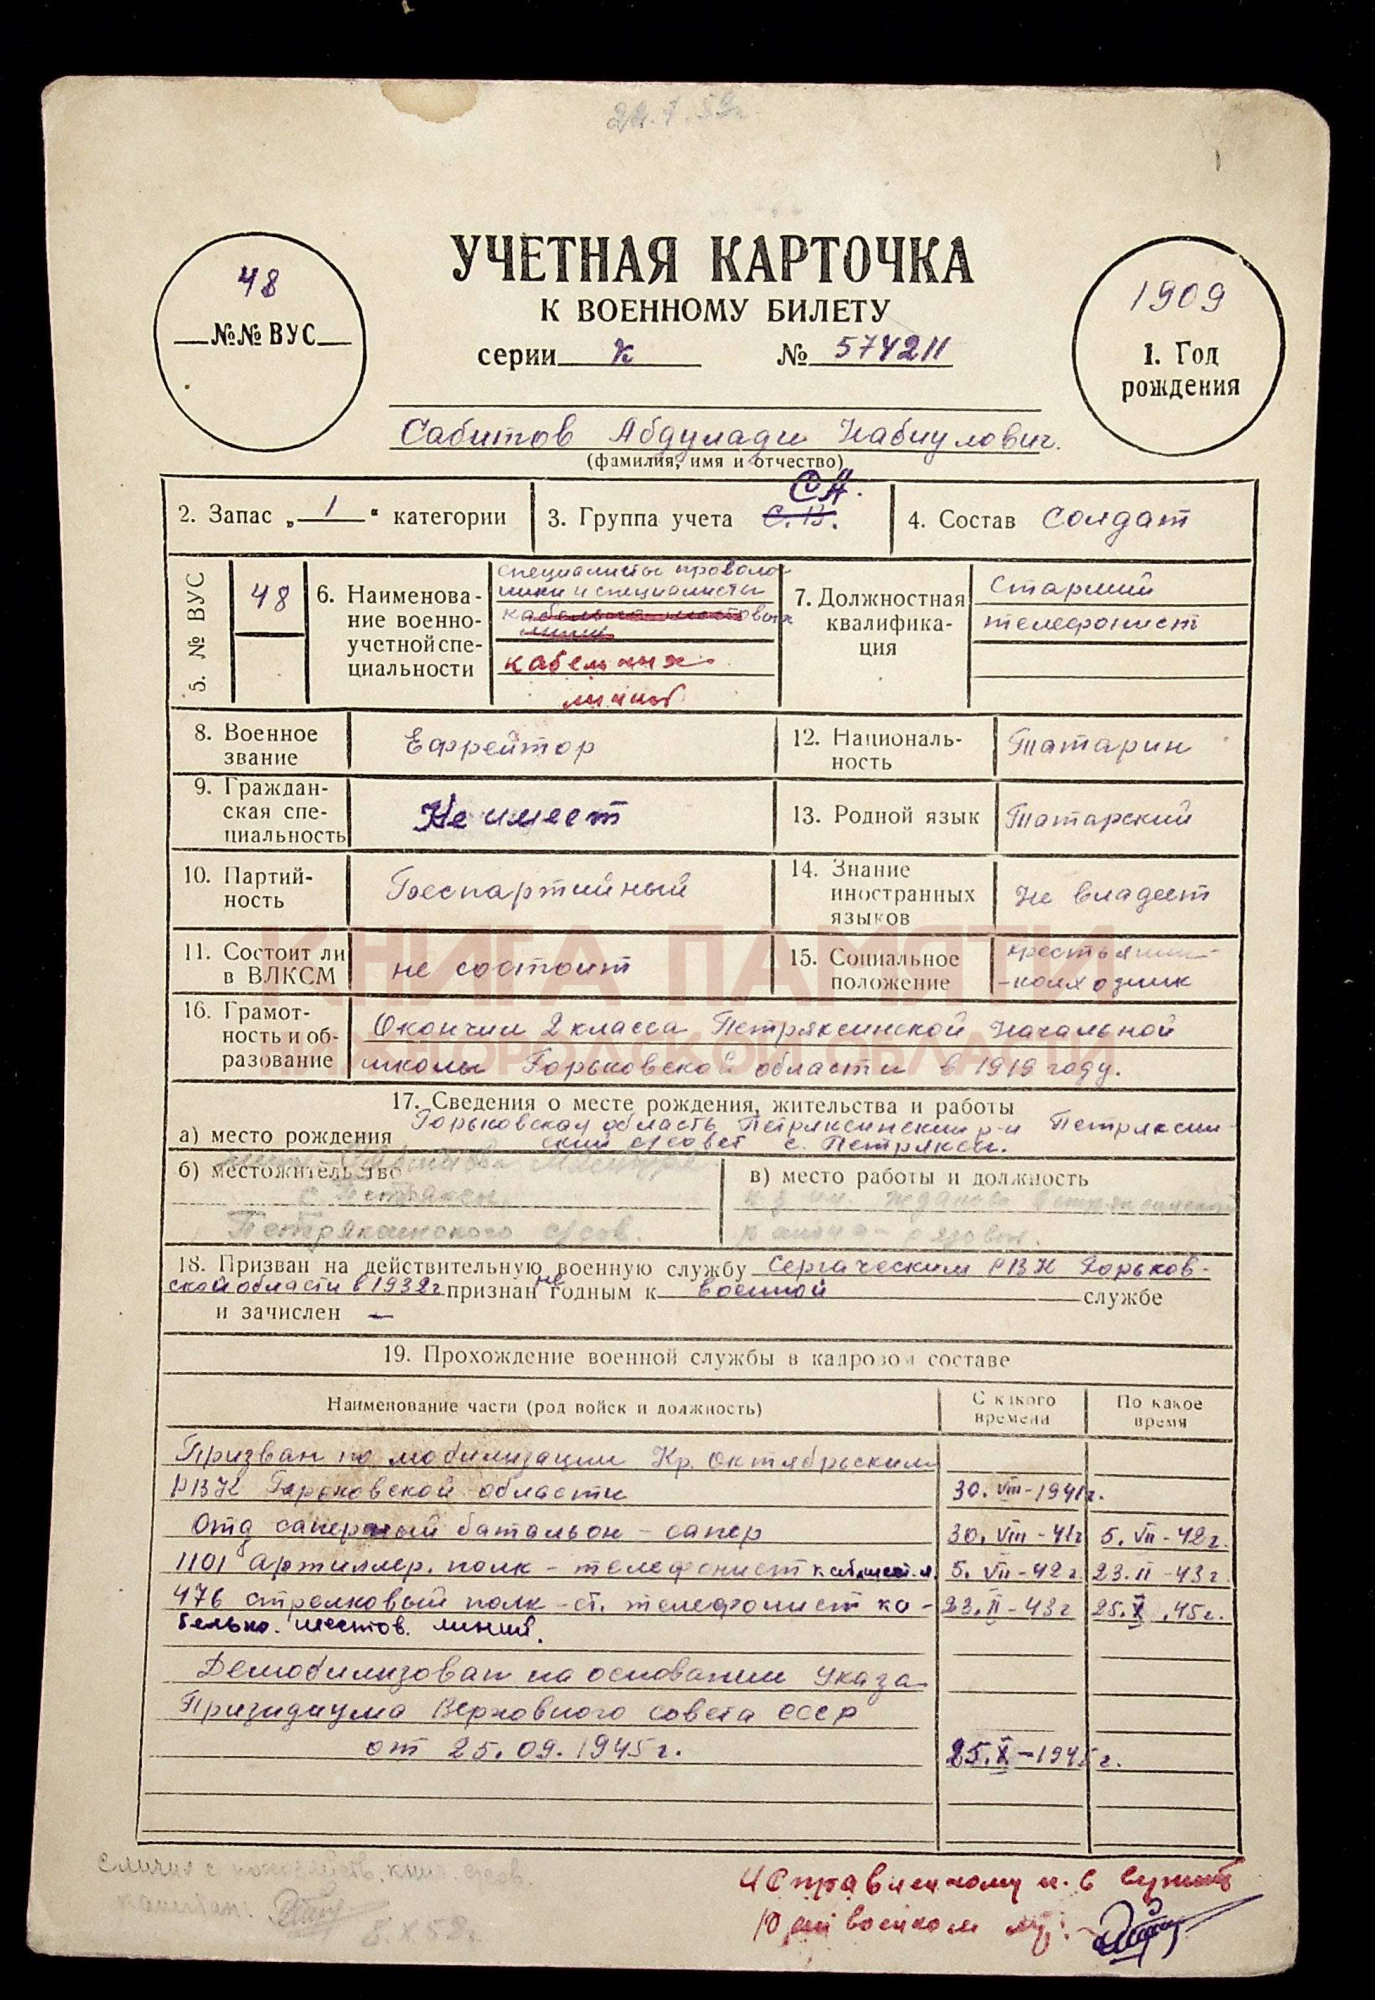 22.1.59г.
48
№№ ВУС
УЧЕТНАЯ КАРТОЧКА
К ВОЕННОМУ БИЛЕТУ
серии К № 574211
1909
1. Год
рождения
Сабитов Абдулади Набиулович.
(фамилия, имя и отчество)
2. Запас „1" категории
3. Группа учета С.В. СА.
4. Состав Солдат
5. № ВУС 48
6. Наименова-
ние военно-
учетной спе-
циальности
специалисты проволо
чики и специалисты
кабельно шестовых
линий
кабельных
линий
7. Должностная
квалифика-
ция
Старший
телефонист
8. Военное
звание
Ефрейтор
12. Националь-
ность
Татарин
9. Граждан-
ская спе-
циальность
Не имеет
13. Родной язык Татарский
10. Партий-
ность
Беспартийный
14. Знание
иностранных
языков
не владеет
11. Состоит ли
в ВЛКСМ
не состоит
15. Социальное
положение
крестьянин
-колхозник
КНИГА ПАМЯТИ
НИЖЕГОРОДСКОЙ ОБЛАСТИ
16. Грамот-
ность и об-
разование
Окончил 2 класса Петряксинской начальной
школы Горьковской области в 1919 году.
17. Сведения о месте рождения, жительства и работы
Горьковская область Петряксинский р-н Петряксин-
а) место рождения
ский с/совет с. Петряксы.
б) местожительство
с. Петряксы
Петряксинского с/сов.
в) место работы и должность
к-з им. Жданова Петряксинского
района - рядовой.
18. Призван на действительную военную службу Сергачским РВК Горьков-
ской области в 1932г признан не годным к военной службе
и зачислен —
19. Прохождение военной службы в кадровом составе
Наименование части (род войск и должность)
С какого
времени
По какое
время
Призван по мобилизации Кр. Октябрьским
РВК Горьковской области 30.VIII-1941г.
Отд саперный батальон - сапер 30.VIII-41г 5.VII-42г.
1101 артиллер. полк - телефонист каб.шест.л. 5.VII-42г 23.II-43г.
476 стрелковый полк - ст. телефонист ка- 23.II-43г 25.X.45г.
бельно. шестов. линий.
Демобилизован на основании Указа
Призидиума Верховного совета СССР
от 25.09.1945г. 25.X-1945г.
Сличил с похозяйств. книг. с/сов.
капитан:
8.X.52г.
Исправленному и.в